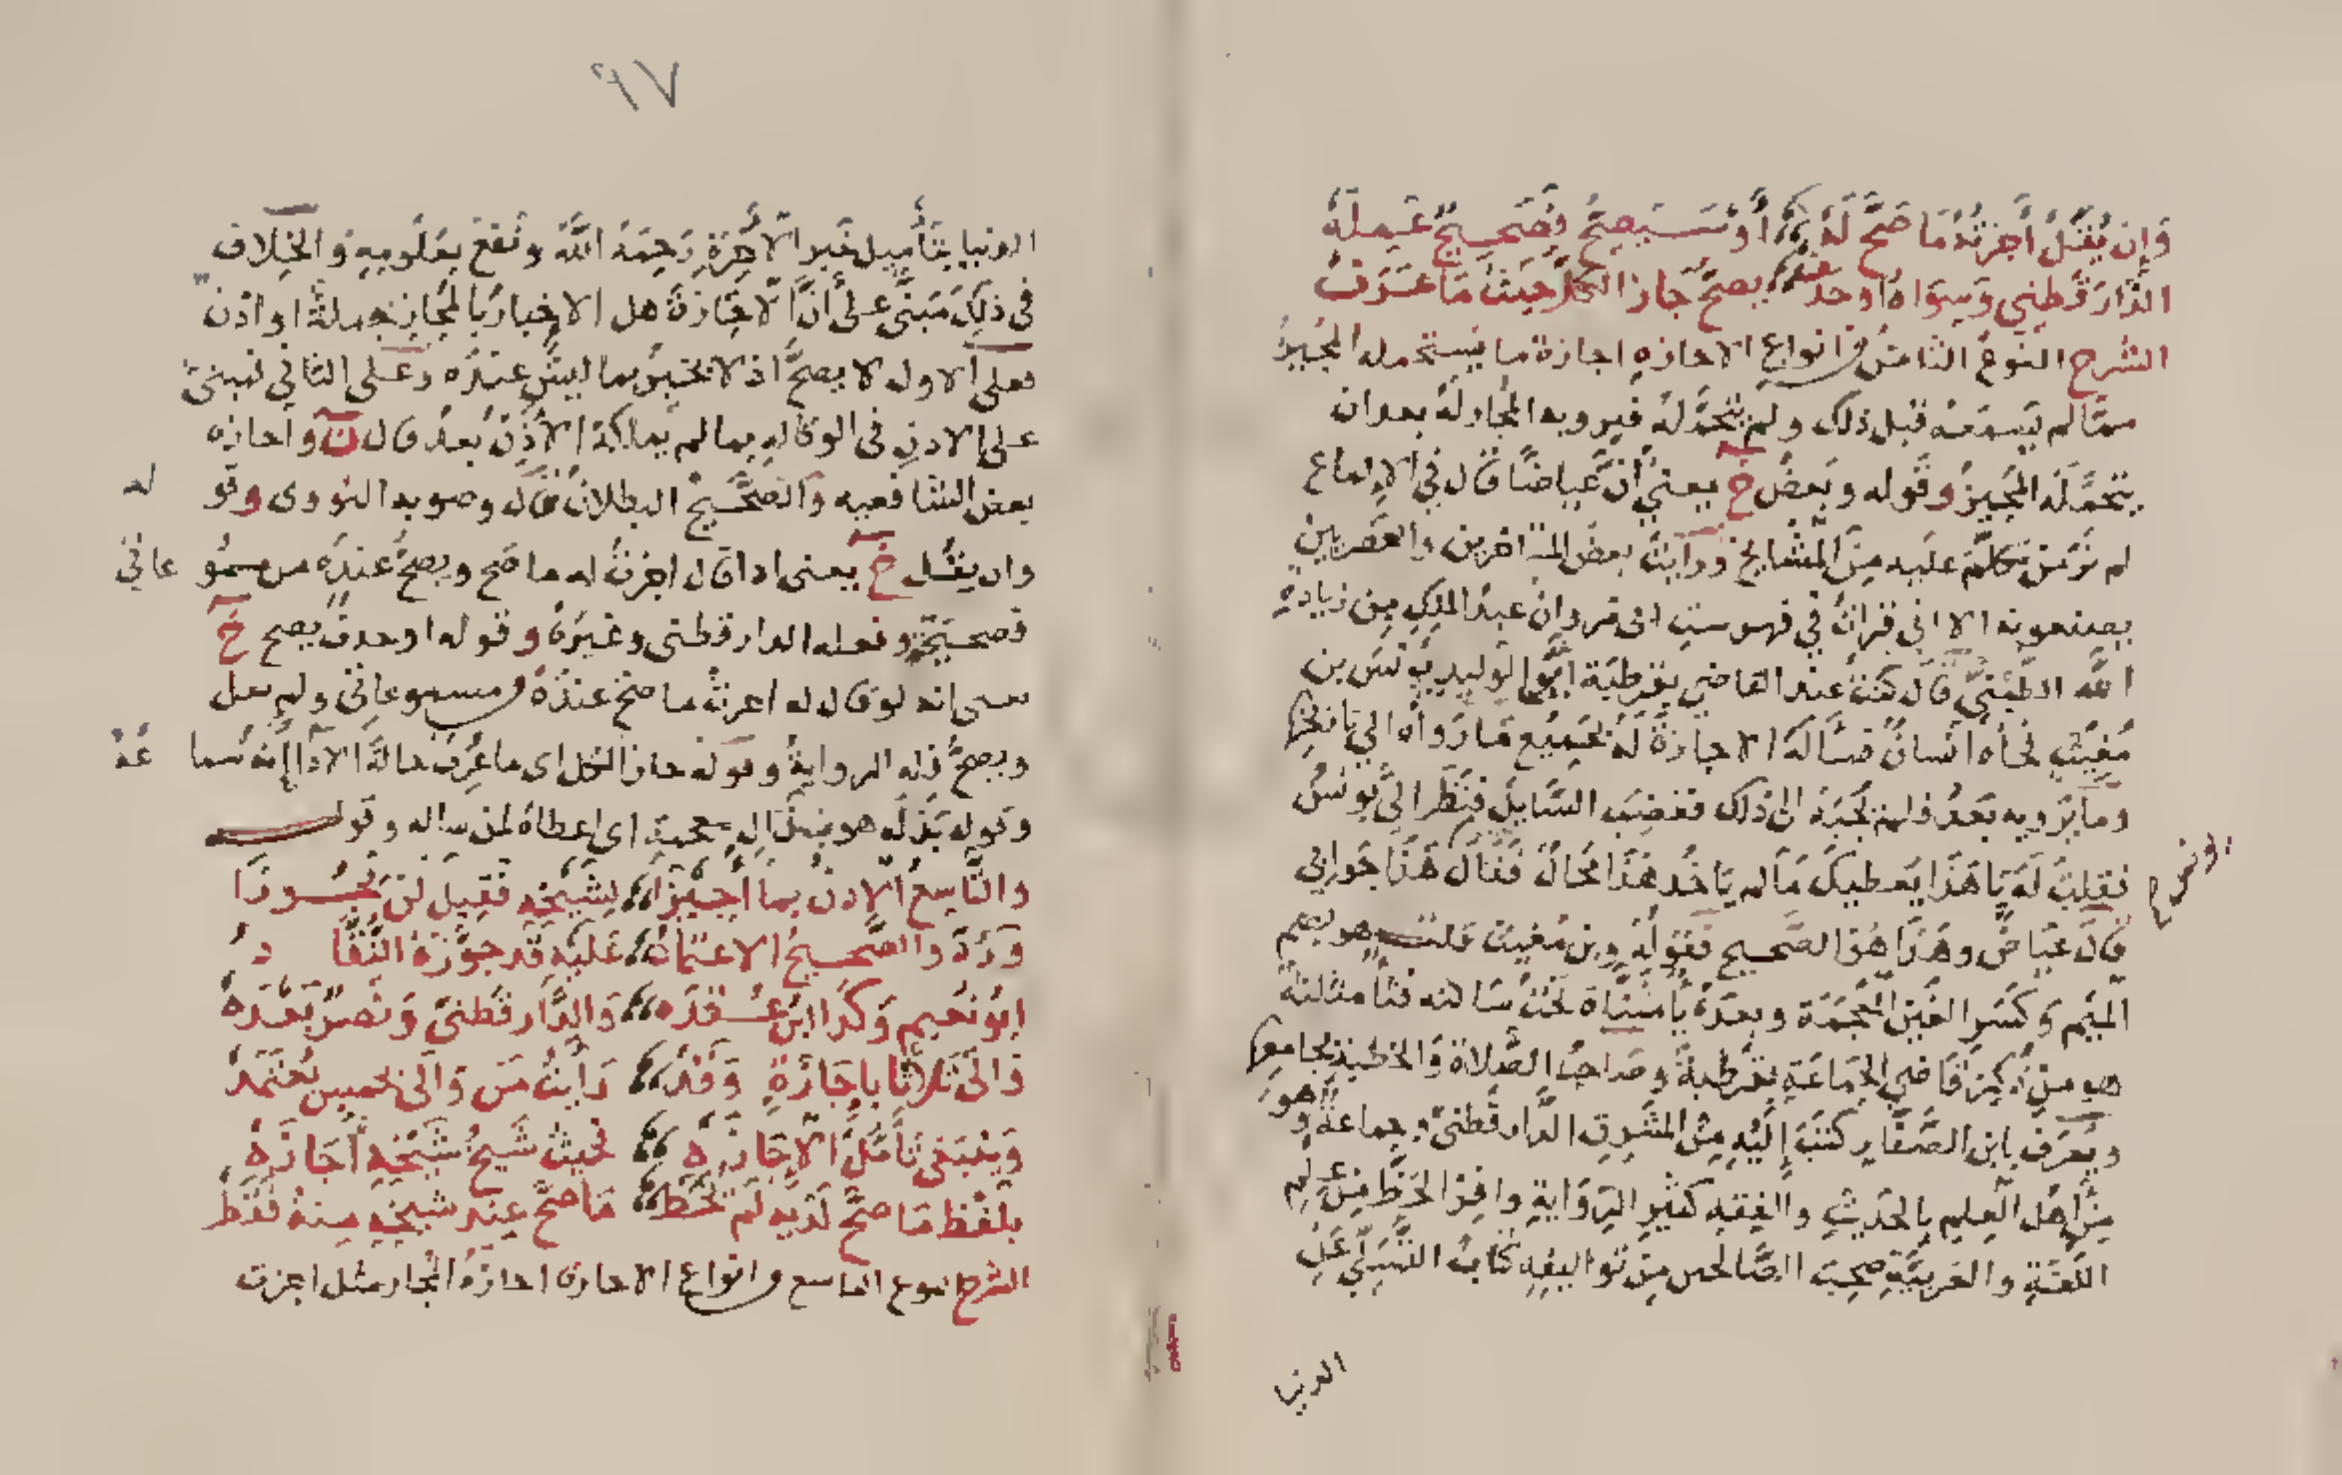 وَإِن يَقُلْ أَجَزْتُهُ مَا صَحَّ لَهُ أَوْ سَيَصِحُّ فَصَحِيحٌ عَمِلَهُ
الدَّارَقُطْنِي وَسِوَاهُ اوحذف يصحّ جَازَ الكلُّ حَيثُ مَا عَرَفْ
الشرح النوعُ الثامنُ من انواع الاجازه اجازة ما يَستحمله المُجِيزُ
ممّا لم يَسمَعه قبل ذلك ولم يتحمّله فيرويه المُجاز لهُ بعد ان
يتحمّلَه المجيزُ وقوله وبَعضُ خ يعني أنّ عياضًا قال في الالماع
لم نرَ مَن تكلّمَ عليه مِنَ المشايخ ورَأيتُ بعضَ المتاخرين والعَصريين
يصنعونه الا اني قراتُ في فهرست ابى مروان عبد الملكِ مِن زيادةِ
الله الطّبنيِّ قال كنتُ عند القاضي بقُرطبَة أبي الوَليد يونسَ بن
مُغِيثٍ فجاه انسانٌ فسَأله الاجازةَ لَهُ بجَميع مَا رَواه الي تاريخها
وَما يَرويه بَعدُ فلم يُجبهُ الى ذلك فغضبَ السَّايل فنظر اليَّ يونسُ
فقلتُ لَه يَا هَذا يعطيكَ مَا لم ياخُذ هَذا مُحَالٌ فقَالَ هَذَا جوَابي
قالَ عيَاضٌ وهَذَا هُوَ الصَّحيح فقولُه وبن مُغيث قلت هو بضم
المِيم وَكَسرِ الغَين المُعجَمَة وبعدَهُ يَا مُثنّاة تحتُ سَاكنه فثا مثلثةٌ
هو مِن ذُكِرَ قاضي الجَمَاعَةِ بقرطبةَ وصَاحِبُ الصَّلاة وَالخطبة بجامعها
ويُعرَفُ بابن الصَّفّار كَتبَ إِلَيْهِ مِنَ المشرِقِ الدَّارقطنى وجماعَةٌ وهو
مِن أهْلِ العِلمِ بالحَدِيثِ والفِقهِ كثير الرّوَايةِ وافِرُ الحَظِّ مِن عِلمِ
اللّغَةِ والعَربيَّةِ صحِبَ الصَّالحين مِن تواليفِهِ كتابُ التَّسَلّي عَنِ
الدنيا
٩٧
الدنيا بتَأمِيل خَير الآخِرَةِ رَحِمَهُ اللَّهُ ونَفعَ بعُلُومِهِ وَالخِلافُ
في ذلِكَ مَبنيٌّ على أنَّ الاجَازةَ هل الاخبارُ بالمُجازِ جملةً او اذنٌ
فعلى الاول لا يصحُّ اذ لا يخبرُ بما ليسَ عندَه وعَلى الثاني فيبنى
على الاذنِ في الوكاله بما لم يملكهُ الآذِنُ بعدُ قال ن واجازه
بعض الشافعيه وَالصَّحِيحُ البطلانُ قال وصوبه النووى وقوله
وان يقُل خ يعنى اذا قال اجزتُ له ما صَح ويصحُّ عندَه من مسموعاتي
فصحيحٌ وفعله الدارقطنى وغيرُهُ وقوله اوحذف يصح خ
يعنى انه لو قال له اجزته ما صحّ عندهُ من مسموعاتى ولم يقل
ويصحُّ فله الروايةُ وقوله جاز الكل اى ما عُرِفَ حالةَ الادا إنه سماعُهُ
وقوله بَذَلَه هو بفتح الذال المعجمة اى اعطاهُ لمن ساله وقوله
والتَّاسِعُ الاذنُ بمَا أُجِيزَا لِشَيْخِهِ فَقِيلَ لَن يَجُوزَا
وَرُدَّ والصَّحِيحُ الاعتمادُ عَلَيهِ قد جوَّزهُ النُّقَّادُ
ابُو نُعَيم وَكَذا ابن عُقدَه وَالدَّارقُطنىُّ وَنَصرٌ بَعْدَهُ
وَالَى ثَلاثًا باجَازَةٍ وَقَدْ رَأَيتُ مَن وَالَى بخمسٍ يُعتَمَدْ
وَيَنبَغي تَأمُّلُ الاجَازَه فحَيث شَيخُ شَيْخِهِ أَجَازَهْ
بلَفظِ مَا صحَّ لَدَيهِ لَم يُخَطّ مَا صحَّ عِندَ شيخِهِ مِنهُ فَقَطْ
الشرح النوع التاسع من انواع الاجازة اجازةُ المُجاز مثل اجزت